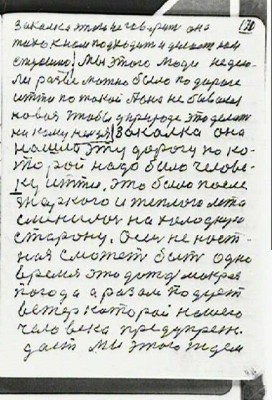 130
Закалка это не говорит она
тихо к нам подходит и делает нам
студеную. Мы этого люди недело-
ли разве можно было по дороге
итти по такой Она не бывала
новая чтобы у природе это делат
на кому нельзя Закалка она
нашла эту дорогу по ко-
торой надо было челове-
ку итти. Это было после
жаркого и теплого лета
сменилос на холодную
старону. Осен не ност-
ная сможет быт одно
время это дожд мокрая
погода а разам подует
ветер каторой нашего
человека предупреж-
дает мы этого ждем